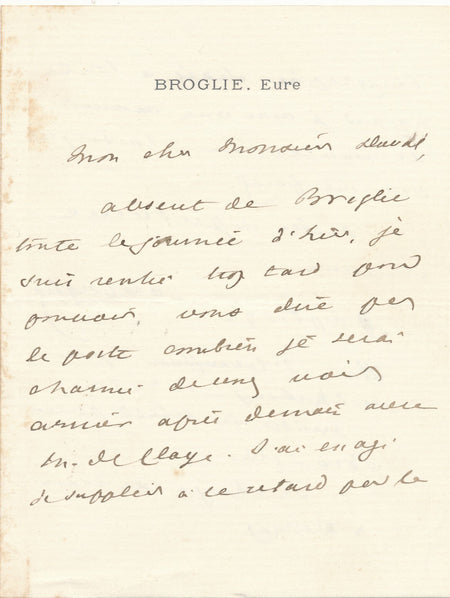 BROGLIE. Eure
Mon cher Monsieur
absent de Broglie
toute la journée d'hier, je
suis rentré trop tard pour
pouvoir vous dire par
la poste combien je serai
charmé de vous voir
arriver après demain avec
M. de Claye. J'ai essayé
de suppléer à ce retard par le